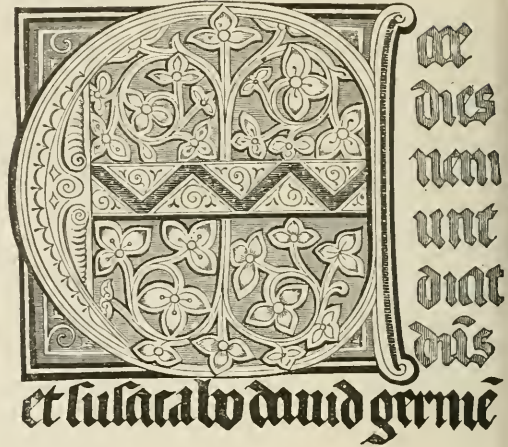 Ecce
dies
veni
unt
dicit
dn̄s
et suscitabo dauid germē